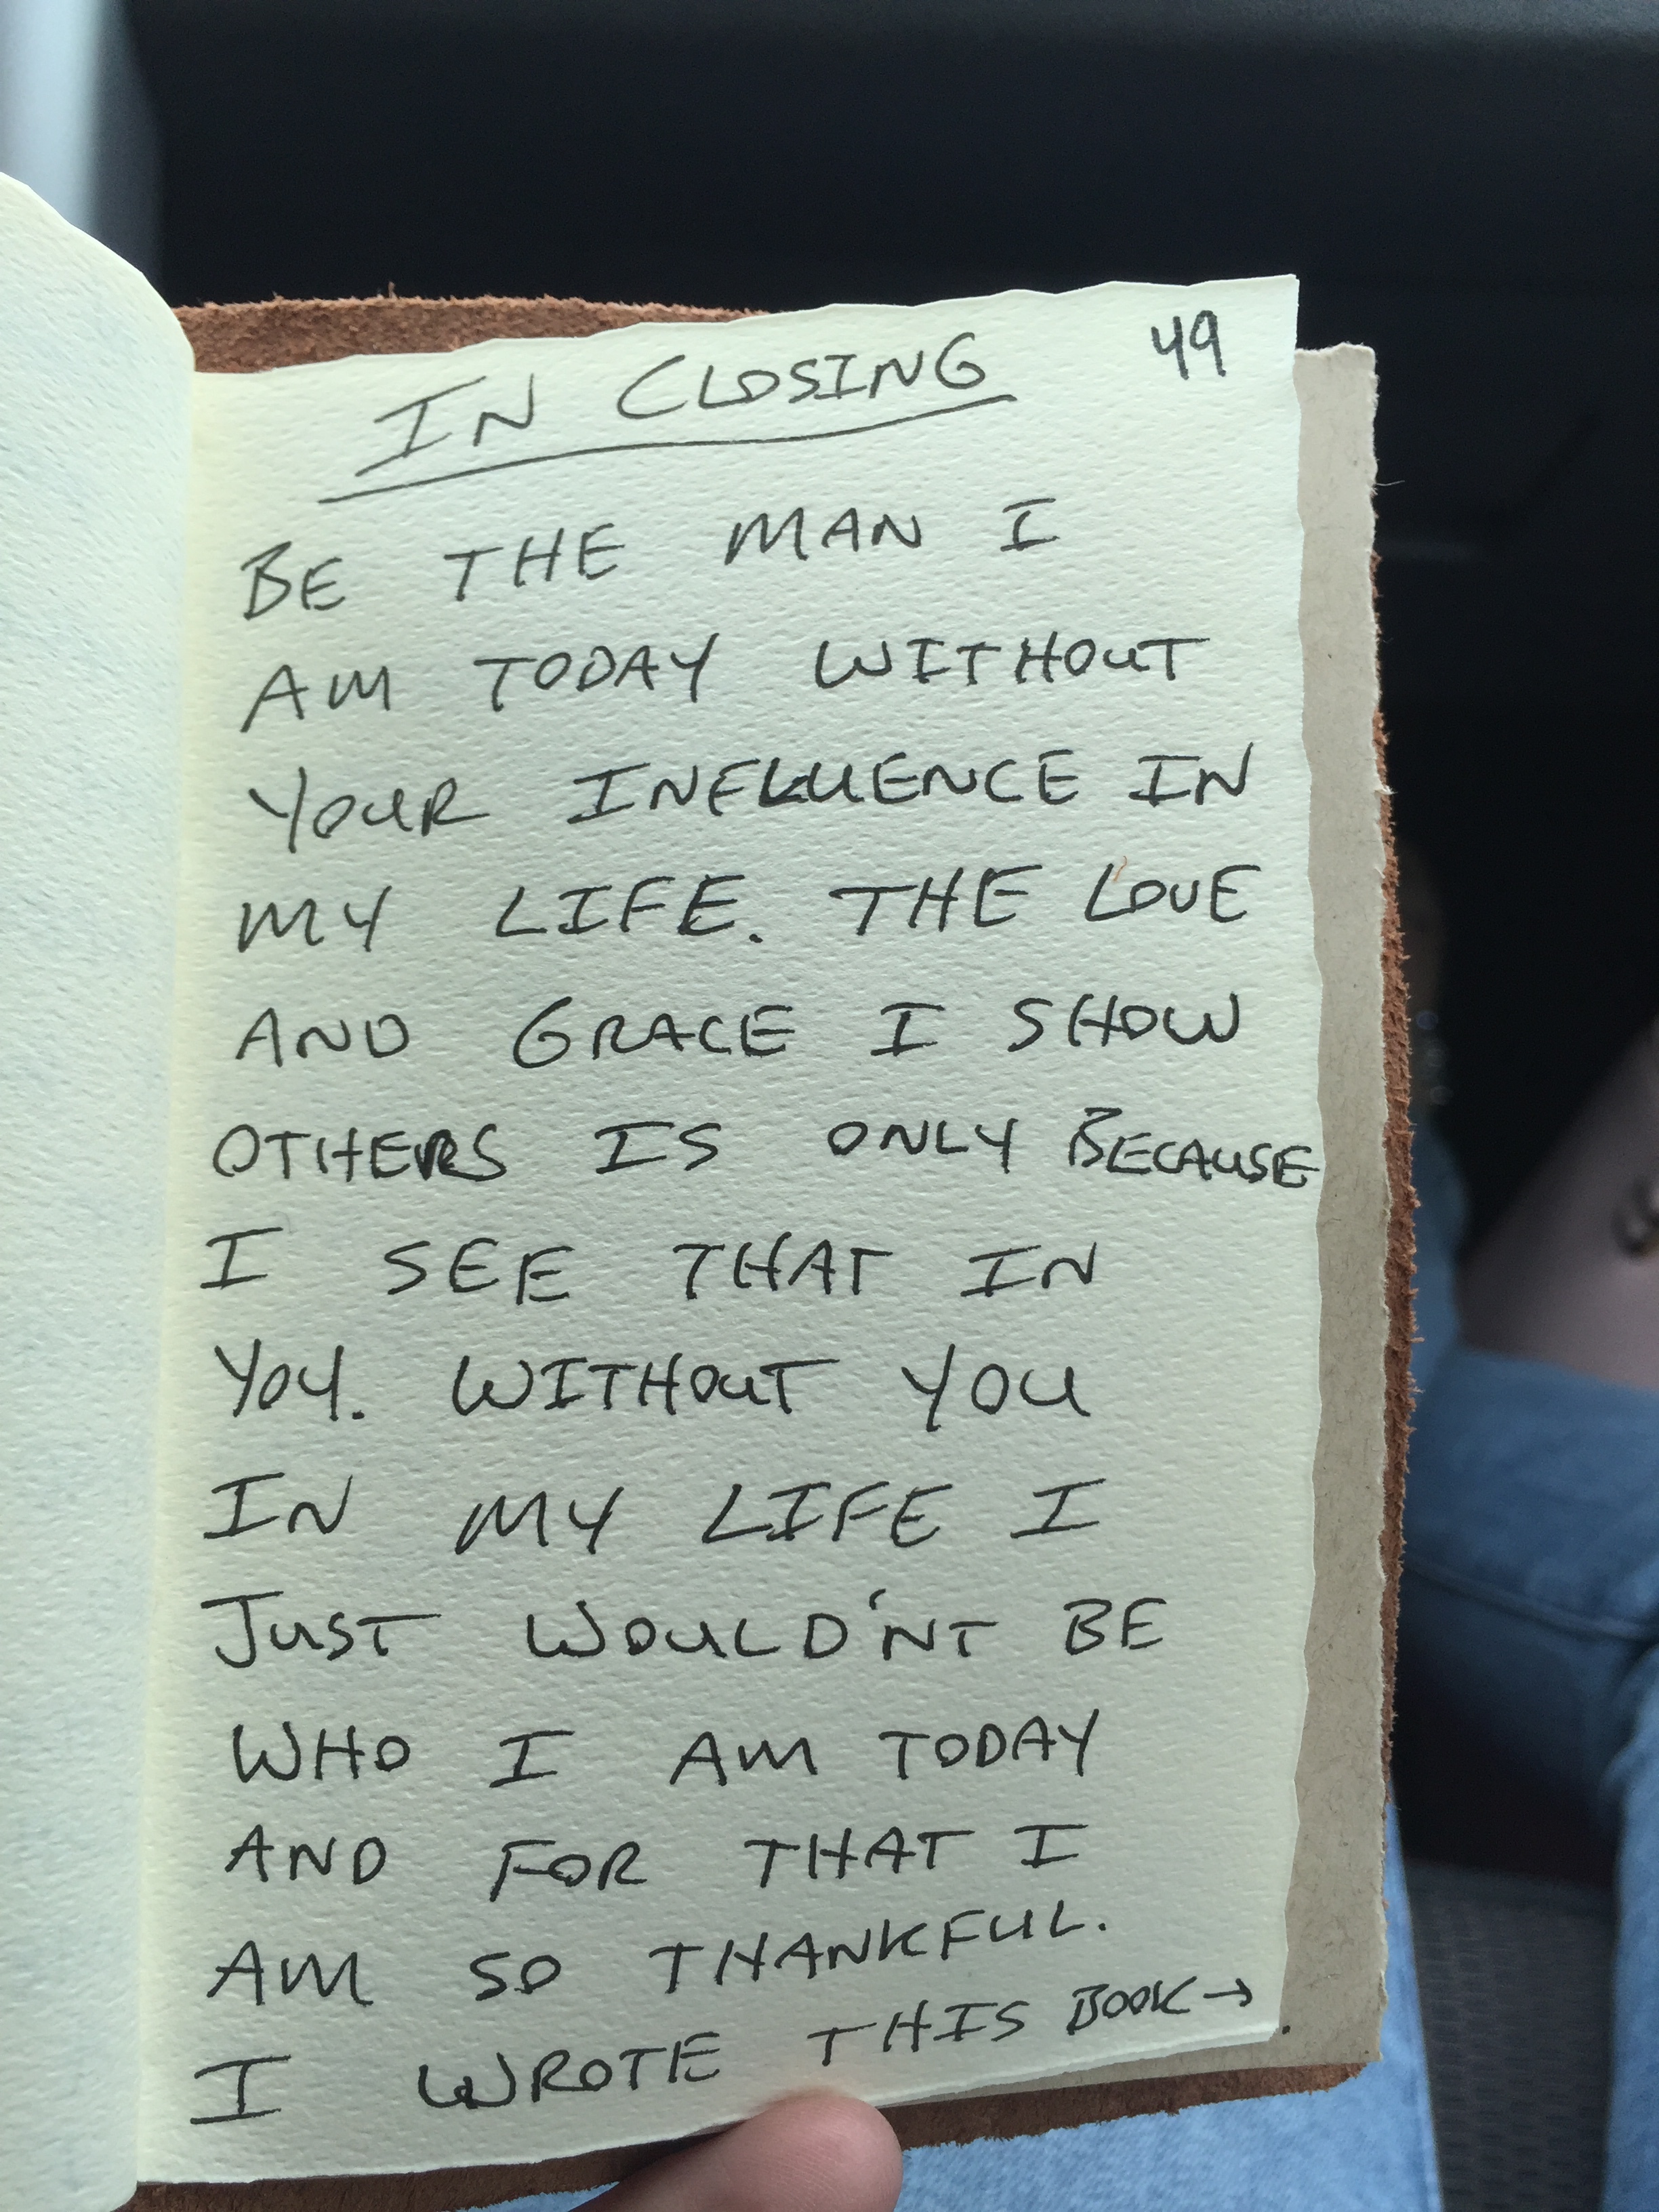 49
IN CLOSING
BE THE MAN I
AM TODAY WITHOUT
YOUR INFLUENCE IN
MY LIFE. THE LOVE
AND GRACE I SHOW
OTHERS IS ONLY BECAUSE
I SEE THAT IN
YOU. WITHOUT YOU
IN MY LIFE I
JUST WOULD'NT BE
WHO I AM TODAY
AND FOR THAT I
AM SO THANKFUL.
I WROTE THIS BOOK →